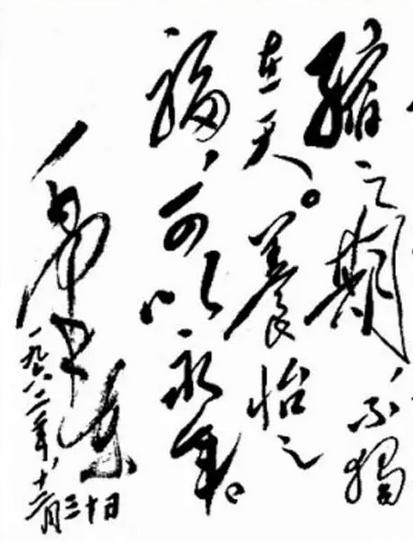 縮之期，不獨
在天。養怡之
福，可以永年。
毛泽东
一九六二年，十二月三十日